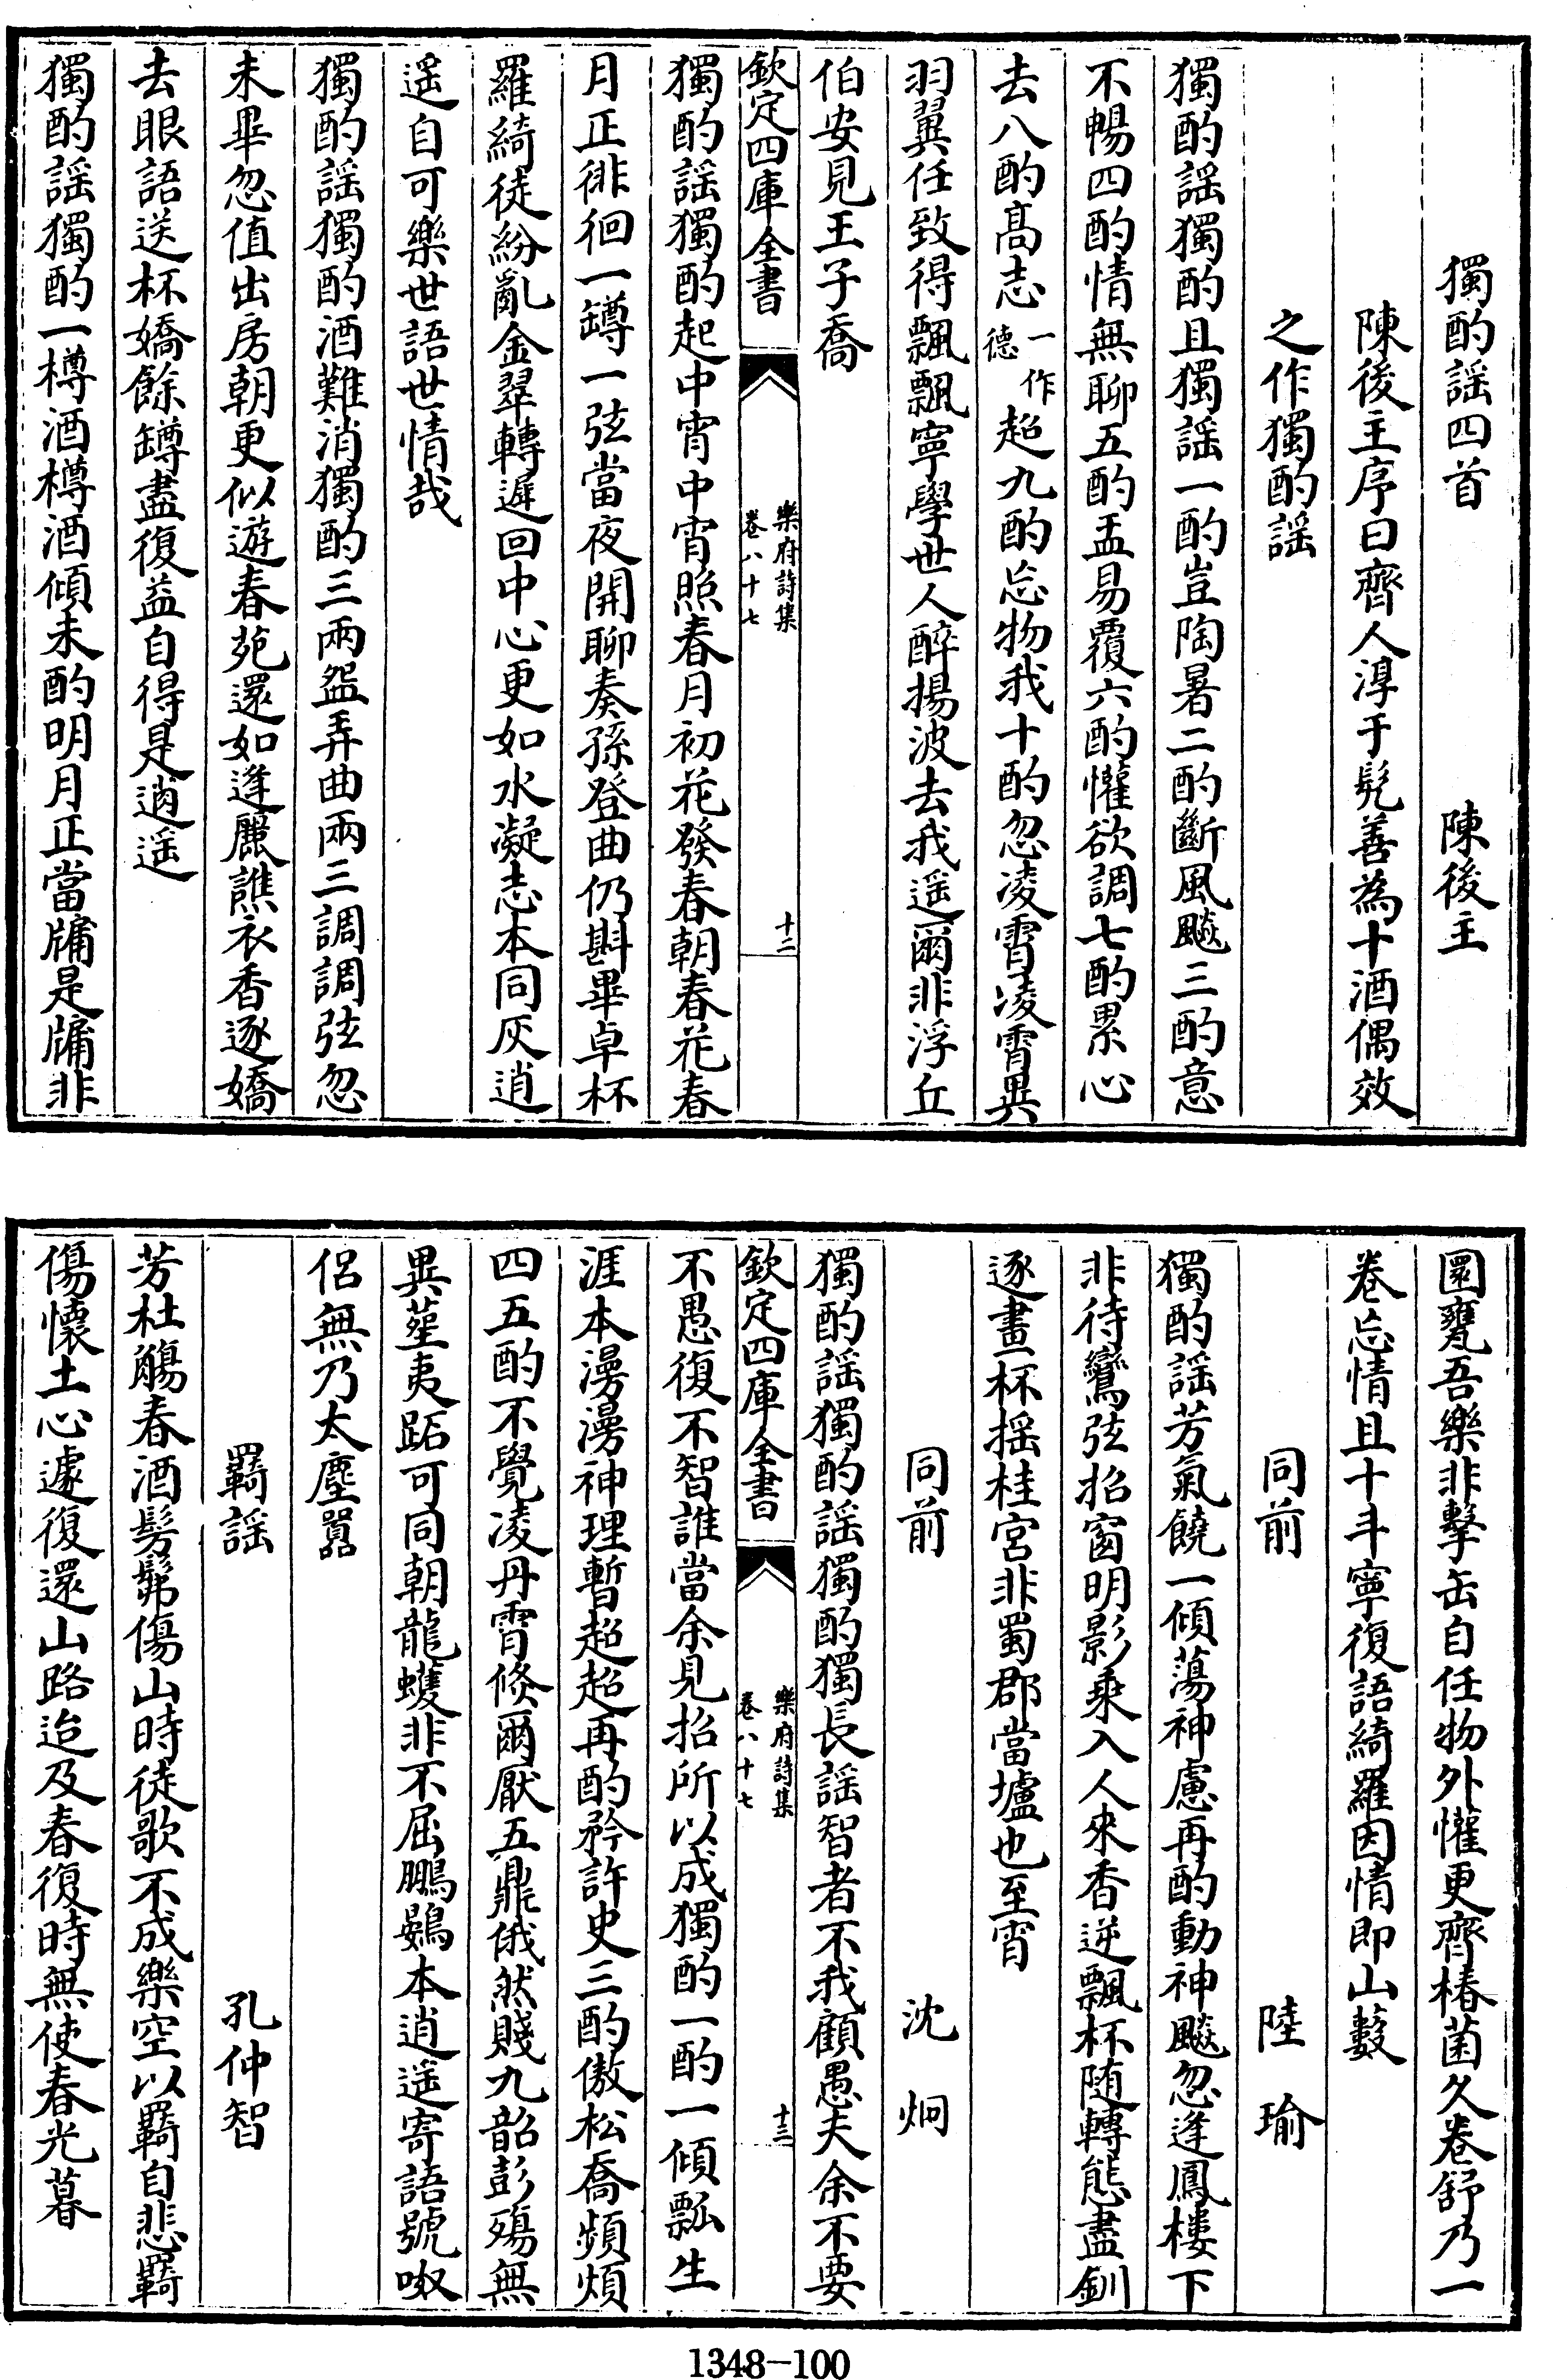 獨酌謡四首　陳後主
陳後主序曰齊人淳于髠善為十酒偶效
之作獨酌謡
獨酌謡獨酌且獨謡一酌豈陶暑二酌斷風飈三酌意
不暢四酌情無聊五酌盂易覆六酌懽欲調七酌累心
去八酌髙志一作德超九酌忘物我十酌忽凌霄凌霄異
羽翼任致得飄飄寧學世人醉揚波去我遥爾非浮丘
伯安見王子喬
欽定四庫全書　樂府詩集卷八十七　十二
獨酌謡獨酌起中宵中宵照春月初花發春朝春花春
月正徘徊一罇一弦當夜開聊奏孫登曲仍斟畢卓杯
羅綺徒紛亂金翠轉遲回中心更如水凝志本同灰逍
遥自可樂世語世情哉
獨酌謡獨酌酒難消獨酌三兩盌弄曲兩三調調弦忽
未畢忽值出房朝更似遊春苑還如逢麗譙衣香逐嬌
去眼語送杯嬌餘罇盡復益自得是逍遥
獨酌謡獨酌一樽酒樽酒傾未酌明月正當牖是牖非
圜甕吾樂非擊缶自任物外懽更齊椿菌久卷舒乃一
卷忘情且十斗寧復語綺羅因情即山藪
同前　陸瑜
獨酌謡芳氣饒一傾蕩神慮再酌動神飈忽逢鳳樓下
非待鸞弦招窗明影乘入人來香逆飄杯随轉態盡釧
逐畫杯揺桂宮非蜀郡當壚也至宵
同前　沈炯
獨酌謡獨酌謡獨酌獨長謡智者不我顧愚夫余不要
欽定四庫全書　樂府詩集卷八十七　十三
不愚復不智誰當余見招所以成獨酌一酌一傾瓢生
涯本漫漫神理暫超超再酌矜許史三酌傲松喬頻煩
四五酌不覺凌丹霄倐爾厭五鼎俄然賤九韶彭殤無
異葬夷跖可同朝龍蠖非不屈鵬鷃本逍遥寄語號呶
侣無乃太塵嚻
羇謡　孔仲智
芳杜觴春酒髣髴傷山時徒歌不成樂空以羇自悲羇
傷懷土心遽復還山路迨及春復時無使春光暮
1348-100